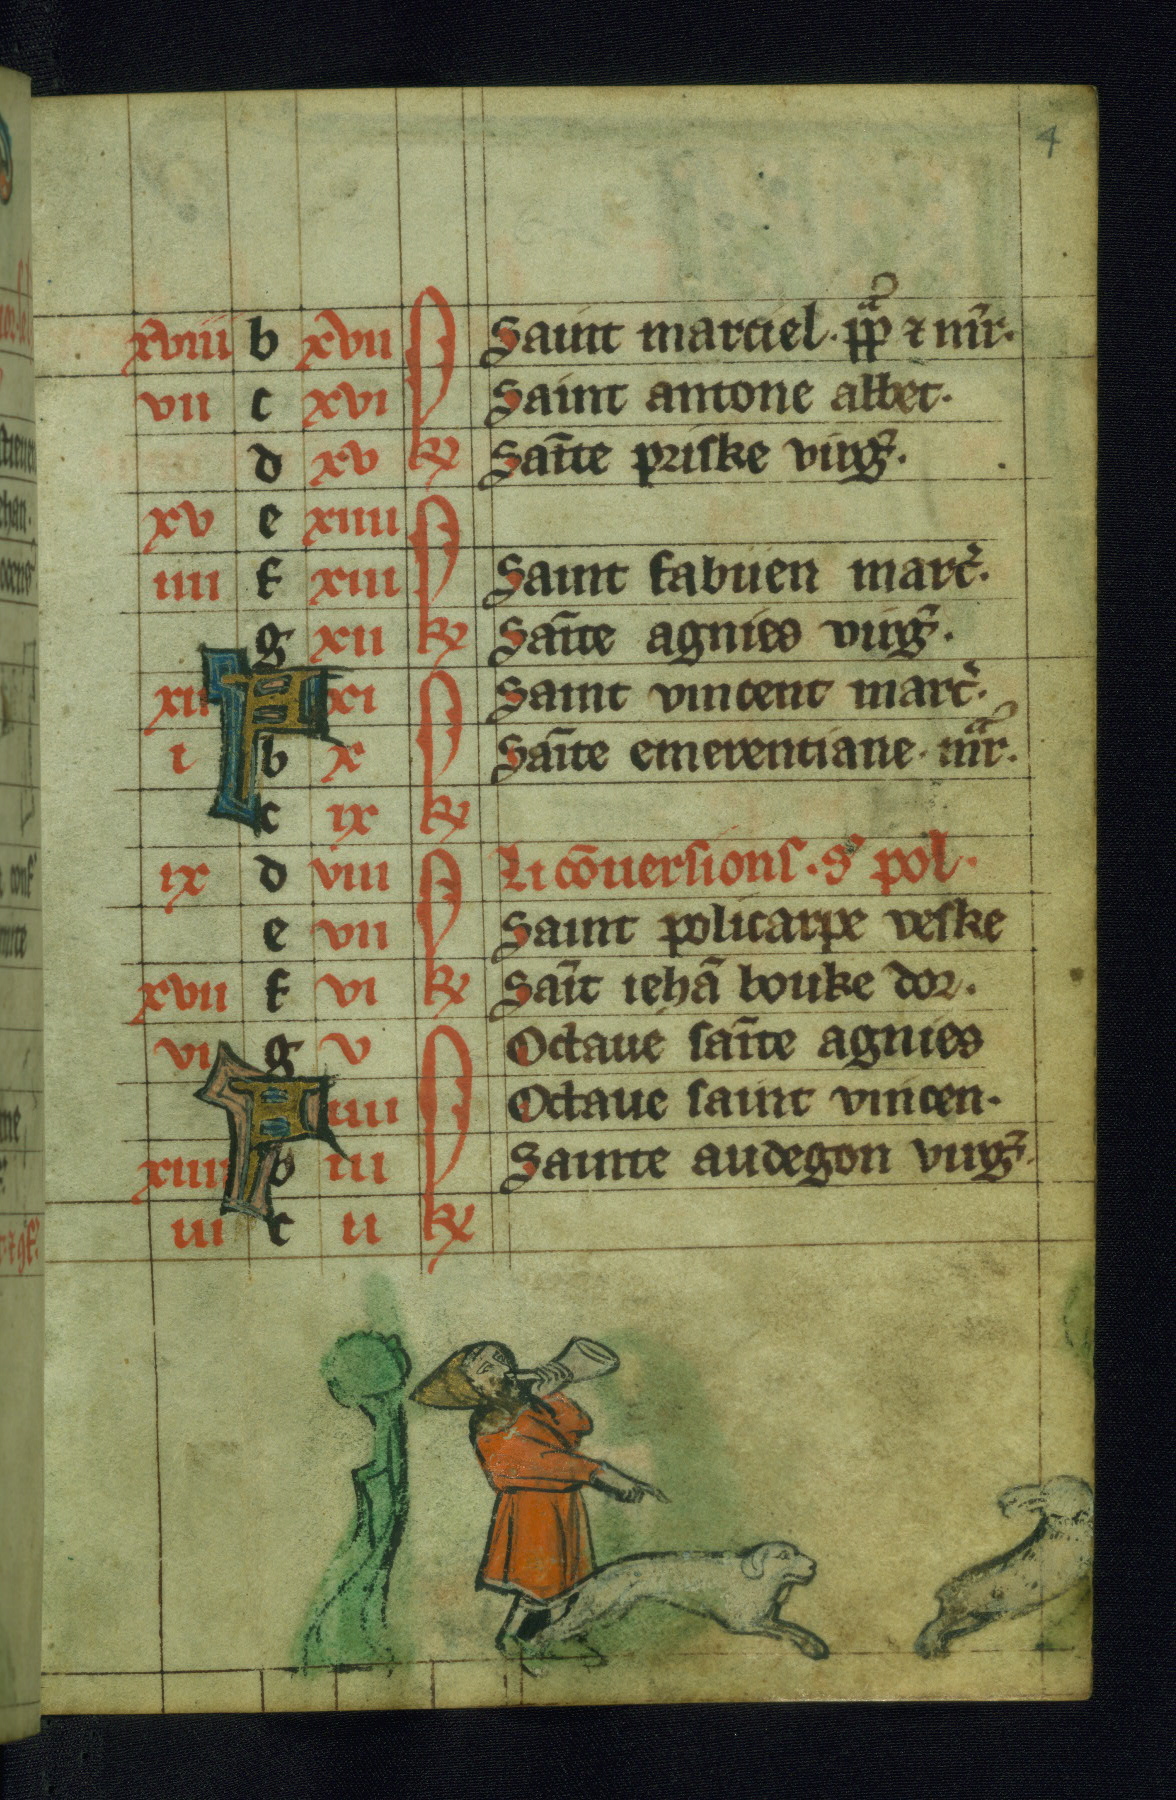 4
xviii b xvii Saint marciel. pp̃ ⁊ mr̃.
vii c xvi Saint antone abbet.
d xv kl Sait̃e priske virg̃.
xv e xiiii
iiii f xiii Saint fabiien mart̃.
g xii kl Sait̃e agnies virg̃.
xii A xi Saint vincent mart̃.
i b x Sait̃e emerentiane. mr̃.
c ix kl
ix d viii Li cõuersions. s' pol.
e vii Saint policarpe veske
xvii f vi kl Sait̃ iehã bouke dor.
vi g v Octaue sait̃e agnies
A iiii Octaue saint vincen.
xiiii b iii Sainte audegon virg̃.
iii c ii kl